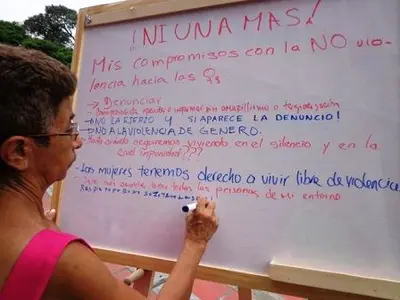 ¡NI UNA MAS!
Mis compromisos con la NO vio-
lencia hacia las ♀s
→ Denunciar
o tergiversación
- NO LA EJERZO Y SI APARECE LA DENUNCIO!
- NO A LA VIOLENCIA DE GENERO.
seguiremos viviendo en el silencio y en la
impunidad???
- Las mujeres tenemos derecho a vivir libre de violencia
todas las personas de mi entorno